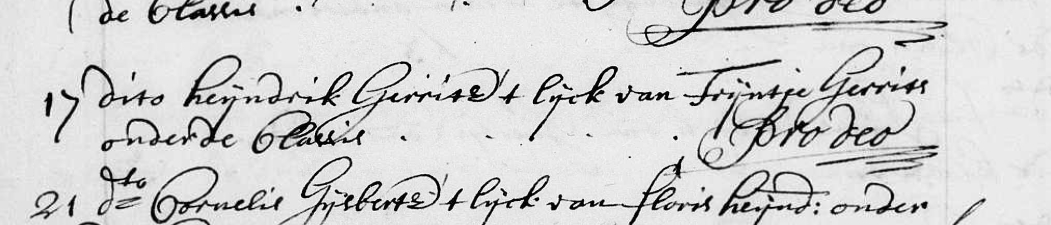 de Classis . . Pro deo
17 dito heijndrik Gerritz t lijck van Trijntje Gerrits
onder de Classis . . . . . Pro deo
21 dto Cornelis Gijsbertz t lijck van floris heijnd: onder